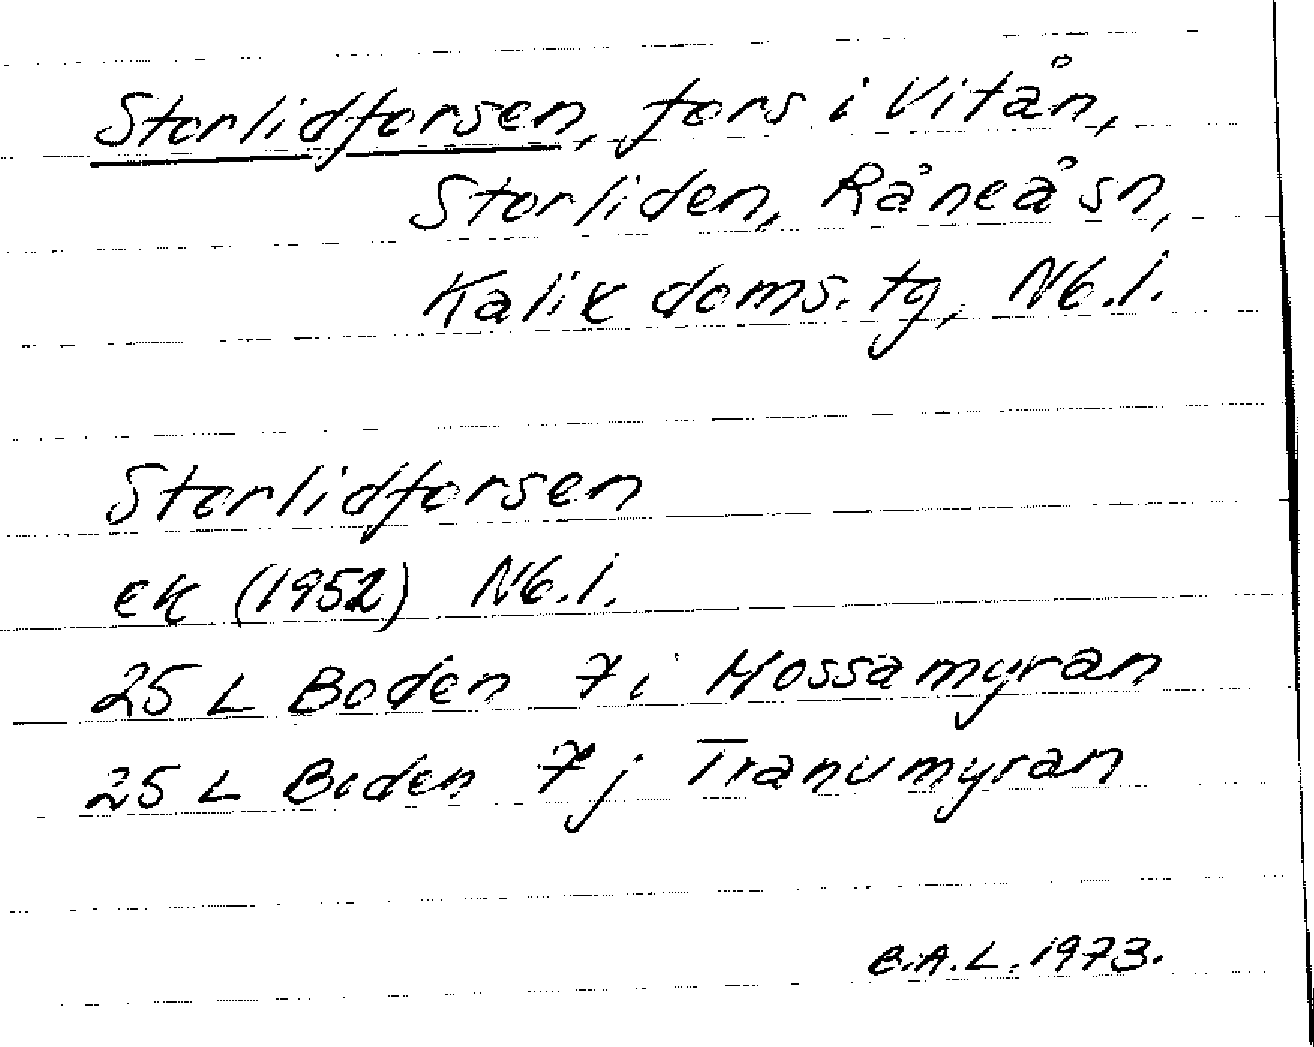 Storlidforsen, fors i Vitån,
Storliden, Råneå sn,
Kalix doms. tg, Nb. l.
Storlidforsen
ek (1952) Nb. l.
25 L Boden 7 i Mossamyran
25 L Boden 7 j Tranumyran
E.A.L. 1973.